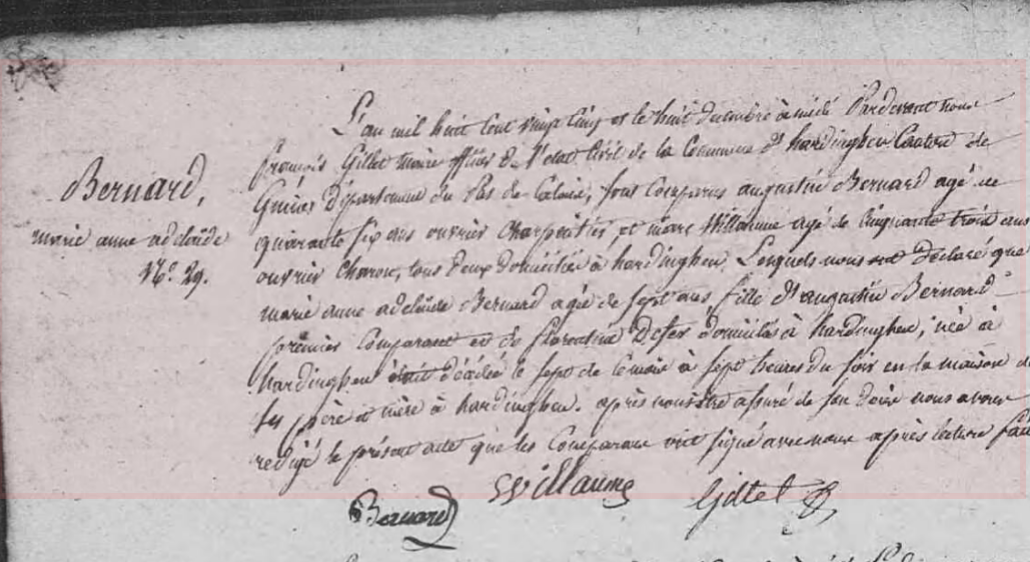 Bernard,
marie anne adelaïde
N.º 29.
L'an mil huit cent vingt cinq et le huit decembre à midi Pardevant nous
françois Gillet maire officier de l'etat Civil de la Commune d'hardinghen Canton de
Guines Département du Pas de Calais, sont Comparus augustin Bernard agé de
quarante six ans ouvrier Charpentier, et marc Willaume agé de Cinquante trois ans
ouvrier Charon, tous deux domiciliés à hardinghen, Lesquels nous ont déclaré que
marie anne adelaïde Bernard agée de sept ans fille d'augustin Bernard
premier Comparant et de florentine Defer domiciliés à hardinghen, née à
hardinghen était décédée le sept de ce mois à sept heures du soir en la maison de
ses père et mère à hardinghen. après nous être assuré de son décès nous avons
redigé le présent acte que les Comparans ont signé avec nous après lecture fait
Bernard Willaume Gillet